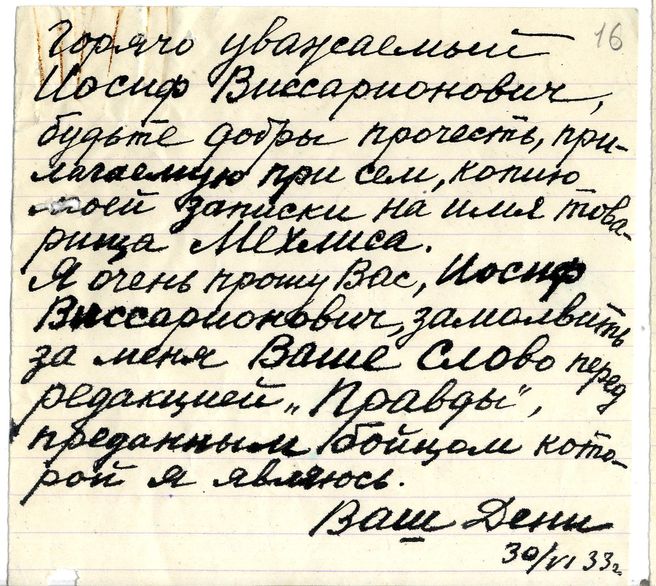 16
Горячо уважаемый
Иосиф Виссарионович,
будьте добры прочесть, при-
лагаемую при сем, копию
моей записки на имя това-
рища Мехлиса.
Я очень прошу Вас, Иосиф
Виссарионович, замолвить
за меня Ваше слово перед
редакцией „Правды“,
преданным бойцом кото-
рой я являюсь.
Ваш Дени
30/VI 33г.